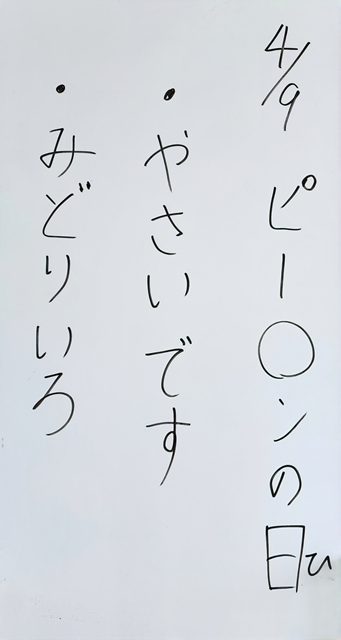 4/9 ピー〇ンの日ひ
・やさいです
・みどりいろ